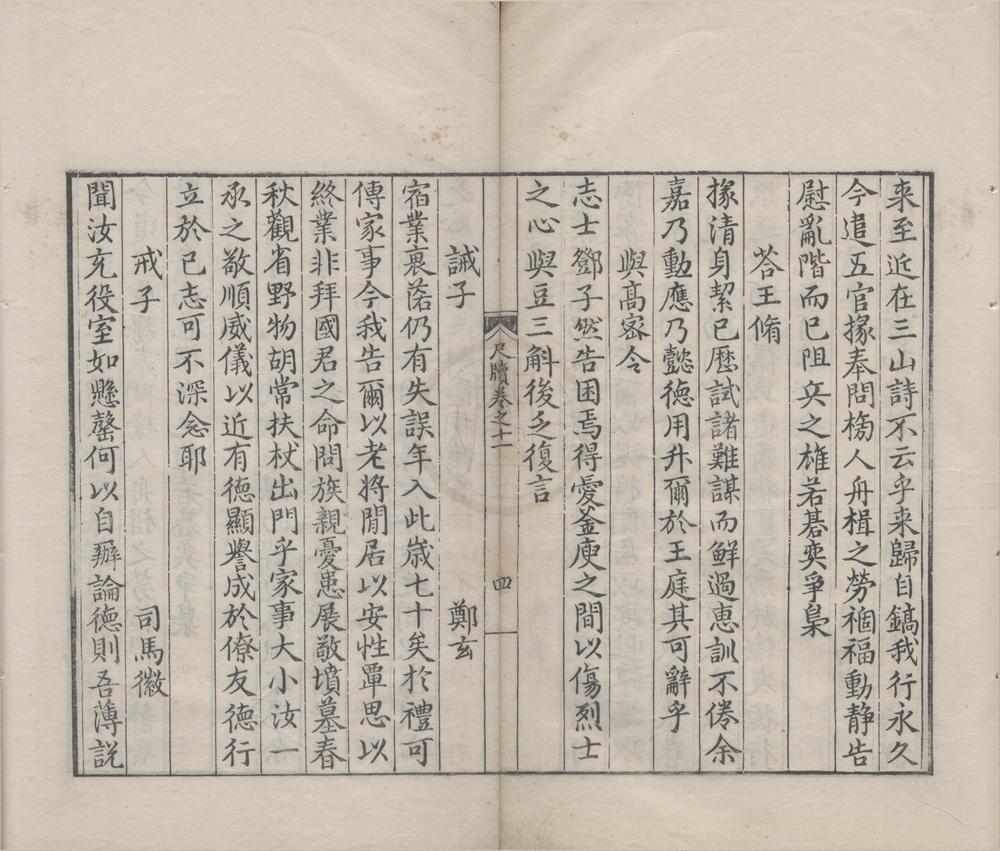 来至近在三山詩不云乎来歸自鎬我行永久
今遣五官掾奉問榜人舟楫之勞福動静告
慰亂階而已阻兵之雄若碁奕爭梟
荅王脩
掾清身絜已歴試諸難謀而鮮過惠訓不倦余
嘉乃勳應乃懿德用升爾於王庭其可辭乎
與高密令
志士鄧子然告困焉得愛釜庾之間以傷烈士
之心與豆三斛後乏復言
尺牘卷之十一 四
誡子 鄭玄
宿業衰落仍有失誤年入此歳七十矣於禮可
傳家事今我告爾以老将閒居以安性覃思以
終業非拜國君之命問族親憂患展敬墳墓春
秋觀省野物胡常扶杖出門乎家事大小汝一
承之敬順威儀以近有德顯譽成於僚友德行
立於已志可不深念耶
戒子 司馬徽
聞汝充役室如懸罄何以自辦論德則吾薄説